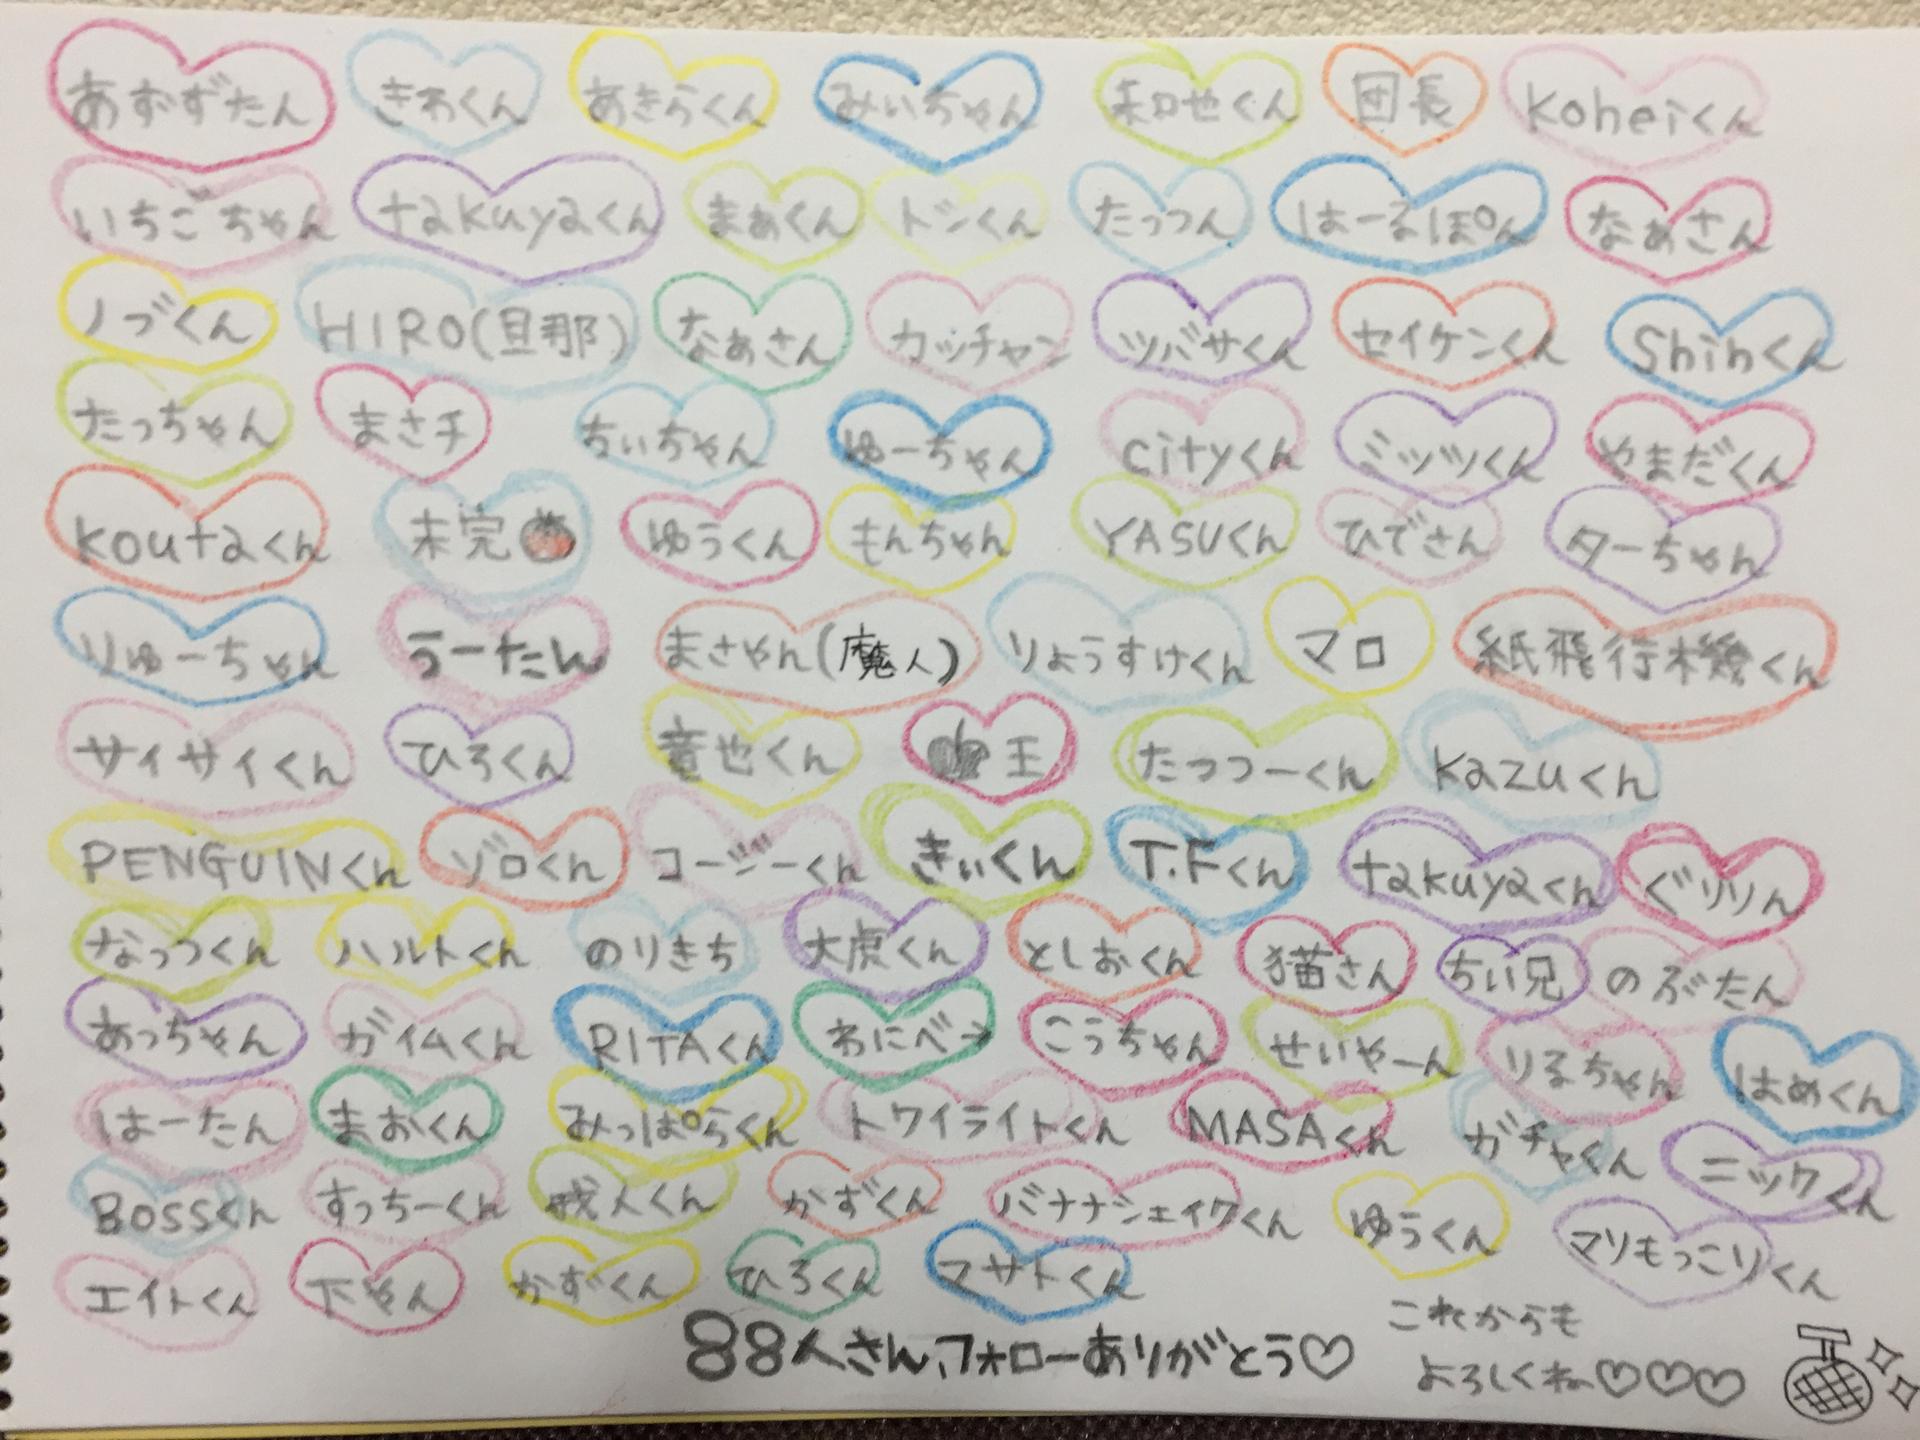 あずずたん きわくん あきらくん みいちゃん 和也くん 団長 Koheiくん
いちごちゃん takuyaくん まぁくん トシくん たっつん はーるぽん なぁさん
ノブくん HIRO(旦那) なぁさん カッチャン ツバサくん セイケンくん Shinくん
たっちゃん まさチ ちぃちゃん ゆーちゃん cityくん ミッツくん やまだくん
koutaくん 未完 ゆうくん もんちゃん YASUくん ひでさん ターちゃん
りゅーちゃん うーたん まさやん(魔人) りょうすけくん マロ 紙飛行機くん
サイサイくん ひろくん 竜也くん 王 たっつーくん kazuくん
PENGUINくん ゾロくん コージーくん きぃくん T.Fくん takuyaくん ぐりりん
なっつくん ハルトくん のりきち 大虎くん としおくん 猫さん ちい兄 のぶたん
あっちゃん ガイムくん RITAくん おにべー こうちゃん せいやーん りるちゃん はめくん
はーたん まおくん みっぱらくん トワイライトくん MASAくん ガチャくん ニックくん
Bossくん すっちーくん 人くん かずくん バナナシェイクくん ゆうくん マリもっこりくん
エイトくん 下やん かずくん ひろくん マサトくん
88人さん、フォローありがとう♡
これからも
よろしくね♡♡♡